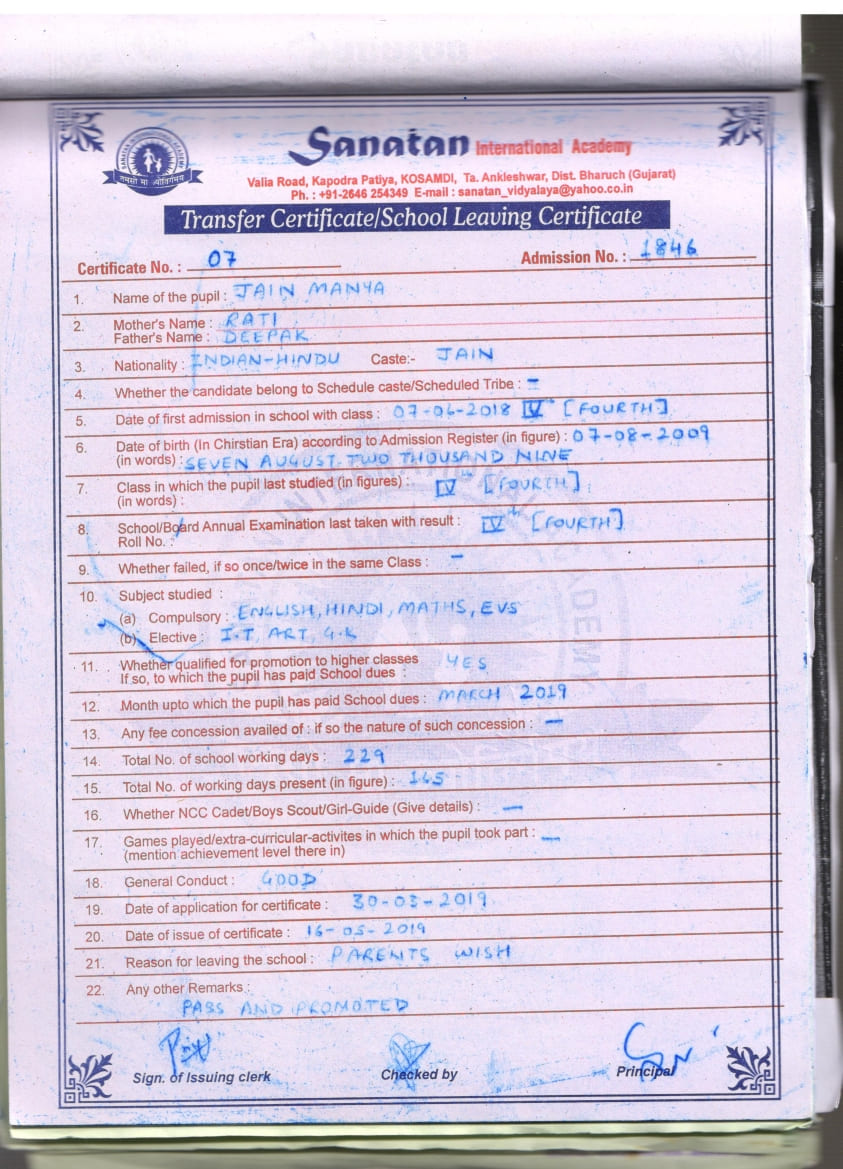 Sanatan International Academy
Valia Road, Kapodra Patiya, KOSAMDI, Ta. Ankleshwar, Dist. Bharuch (Gujarat)
Ph. : +91-2646 254349 E-mail : sanatan_vidyalaya@yahoo.co.in
तमसो मा ज्योतिर्गमय
Transfer Certificate/School Leaving Certificate
Certificate No. : 07 Admission No. : 1846
1. Name of the pupil : JAIN MANYA
2. Mother's Name : RATI
Father's Name : DEEPAK
3. Nationality : INDIAN-HINDU Caste:- JAIN
4. Whether the candidate belong to Schedule caste/Scheduled Tribe : –
5. Date of first admission in school with class : 07-04-2018 IV [FOURTH]
6. Date of birth (In Chirstian Era) according to Admission Register (in figure) : 07-08-2009
(in words) : SEVEN AUGUST TWO THOUSAND NINE
7. Class in which the pupil last studied (in figures) : IV [FOURTH]
(in words) :
8. School/Board Annual Examination last taken with result : IVth [FOURTH]
Roll No. :
9. Whether failed, if so once/twice in the same Class : –
10. Subject studied :
(a) Compulsory : ENGLISH, HINDI, MATHS, EVS
(b) Elective : I.T, ART, G.K
11. Whether qualified for promotion to higher classes YES
If so, to which the pupil has paid School dues :
12. Month upto which the pupil has paid School dues : MARCH 2019
13. Any fee concession availed of : if so the nature of such concession : –
14. Total No. of school working days : 229
15. Total No. of working days present (in figure) : 145
16. Whether NCC Cadet/Boys Scout/Girl-Guide (Give details) : –
17. Games played/extra-curricular-activites in which the pupil took part : –
(mention achievement level there in)
18. General Conduct : GOOD
19. Date of application for certificate : 30-03-2019
20. Date of issue of certificate : 16-05-2019
21. Reason for leaving the school : PARENTS WISH
22. Any other Remarks :
PASS AND PROMOTED
Sign. of Issuing clerk Checked by Principal